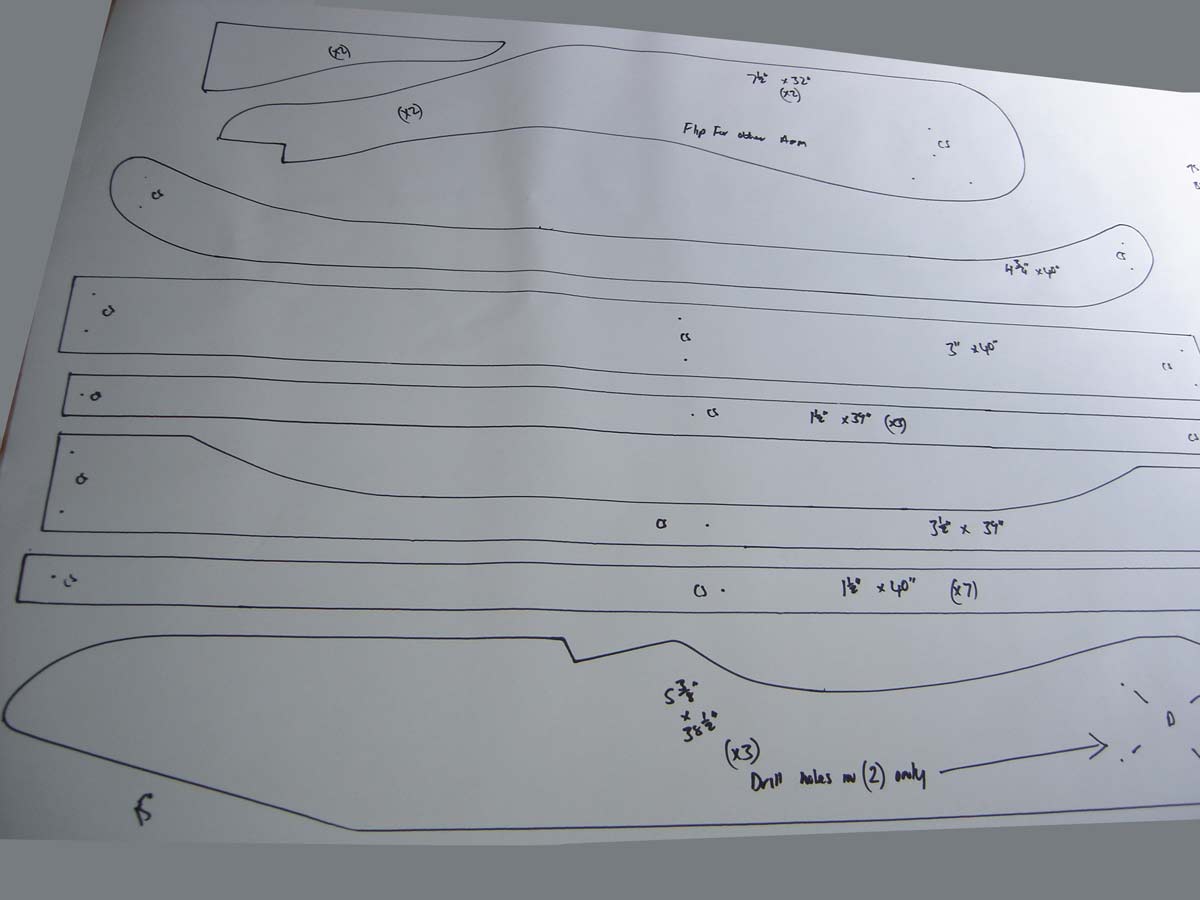 (x2)
(x2)
7½" x 32"
(x2)
Flip For other Arm
CS
CS
4¾" x 40"
CS
CS
CS
3" x 40"
CS
CS
CS
1½" x 39" (x3)
CS
CS
CS
3½" x 39"
CS
CS
1½" x 40" (x7)
5⅜"
x
38½"
(x3)
Drill holes in (2) only
D